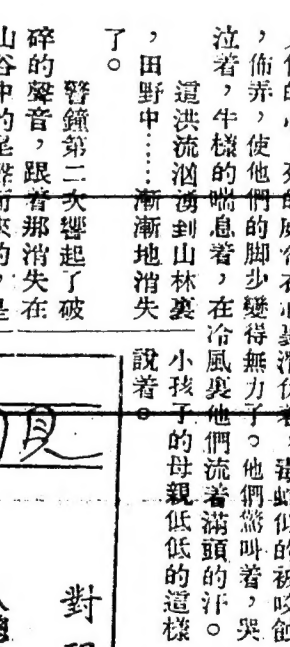 毒蛇似的被咬蝕
,佈弄,使他們的脚步變得無力了。他們驚叫着,哭
泣着,牛樣的喘息着,在冷風裏他們流着滿頭的汗。
這洪流洶湧到山林裏
,田野中……漸漸地消失
了。
警鐘第二次響起了破
碎的聲音,跟着那消失在
山谷中的
小孩子的母親低低的這樣
說着。
對